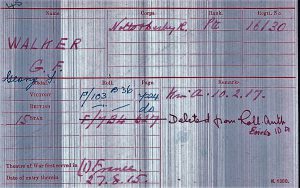 Name. Corps. Rank. Regtl. No.
WALKER Notts & Derby R. Pte 16130
G. F.
George F.
Roll. Page. Remarks.
VICTORY P/103 B36 K in A. 10.2.17.
BRITISH do do
15 STAR F/7B4 647 Deleted from Roll Auth
Theatre of War first served in (1) France
Date of entry therein 27.8.15. K. 1380.